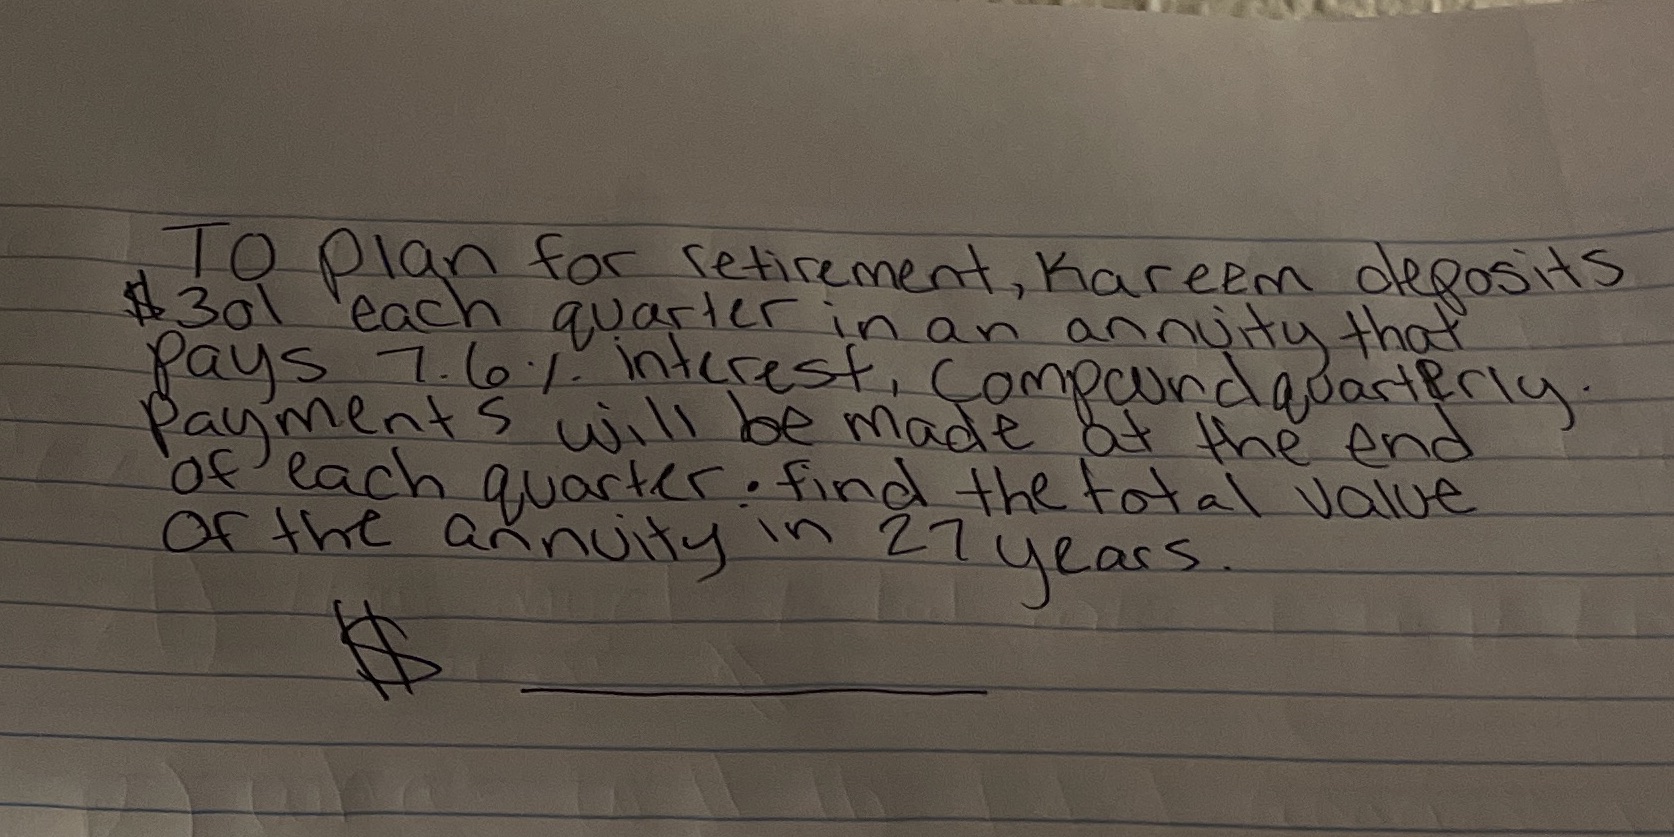 To plan for retirement, Kareem deposits
$301 each quarter in an annuity that
pays 7.6% interest, compound quarterly.
Payments will be made at the end
of each quarter. find the total value
of the annuity in 27 years.
$